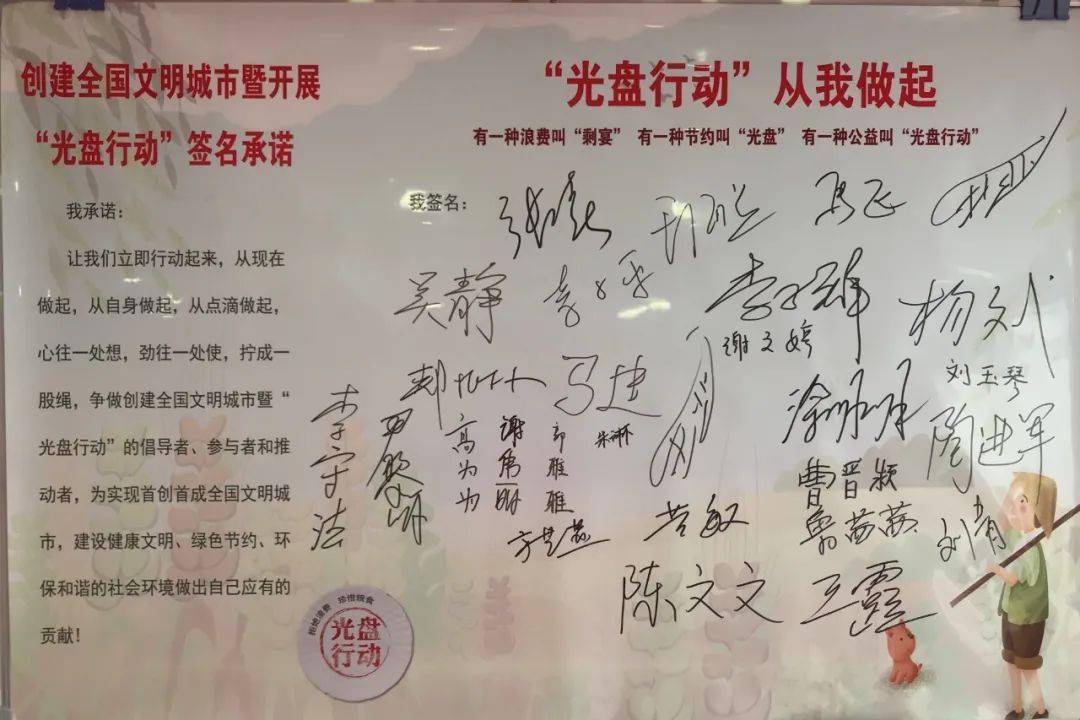 创建全国文明城市暨开展
“光盘行动”签名承诺
我承诺：
让我们立即行动起来，从现在
做起，从自身做起，从点滴做起，
心往一处想，劲往一处使，拧成一
股绳，争做创建全国文明城市暨“
光盘行动”的倡导者、参与者和推
动者，为实现首创首成全国文明城
市，建设健康文明、绿色节约、环
保和谐的社会环境做出自己应有的
贡献！
“光盘行动”从我做起
有一种浪费叫“剩宴” 有一种节约叫“光盘” 有一种公益叫“光盘行动”
我签名：
马正
吴静
杨刘
谢文婷
刘玉琴
马建
李守法
高为为
郭雅雅
曹晋颖
黄敏
刘青
陈文文
王霞
拒绝浪费 珍惜粮食
光盘
行动